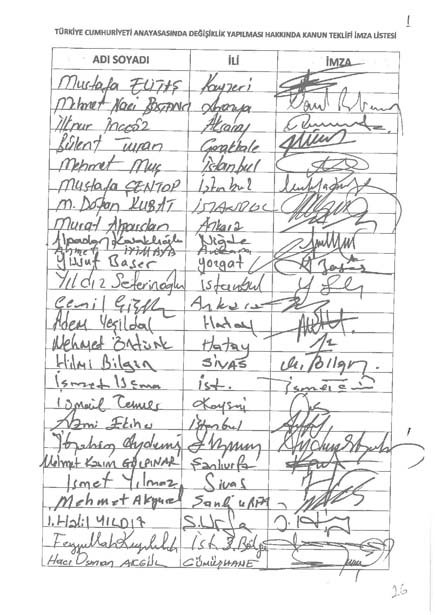 1
TÜRKİYE CUMHURİYETİ ANAYASASINDA DEĞİŞİKLİK YAPILMASI HAKKINDA KANUN TEKLİFİ İMZA LİSTESİ
ADI SOYADI İLİ İMZA
Mustafa ELİTAŞ Kayseri
Mehmet Naci Bostancı Amasya
İlknur İnceöz Aksaray
Bülent Turan Çanakkale
Mehmet Muş İstanbul
Mustafa ŞENTOP İstanbul
M. Doğan KUBAT İSTANBUL
Murat Alparslan Ankara
Alparslan Kavaklıoğlu Niğde
Ahmet Ankara
Yusuf Başer Yozgat
Yıldız Seferinoğlu İstanbul
Ankara
Adem Yeşildal Hatay
Mehmet Öntürk Hatay
Hilmi Bilgin SİVAS
İsmet Uçma İst.
İsmail Tamer Kayseri
İstanbul
İbrahim Aydemir Erzurum
Mehmet Kasım GÜLPINAR Şanlıurfa
İsmet Yılmaz Sivas
Mehmet Akyürek Şanlıurfa
İ. Halil YILDIZ Ş.Urfa
Feyzullah Kıyıklık İst. 3. Bölge
Hacı Osman AKGÜL GÜMÜŞHANE
26